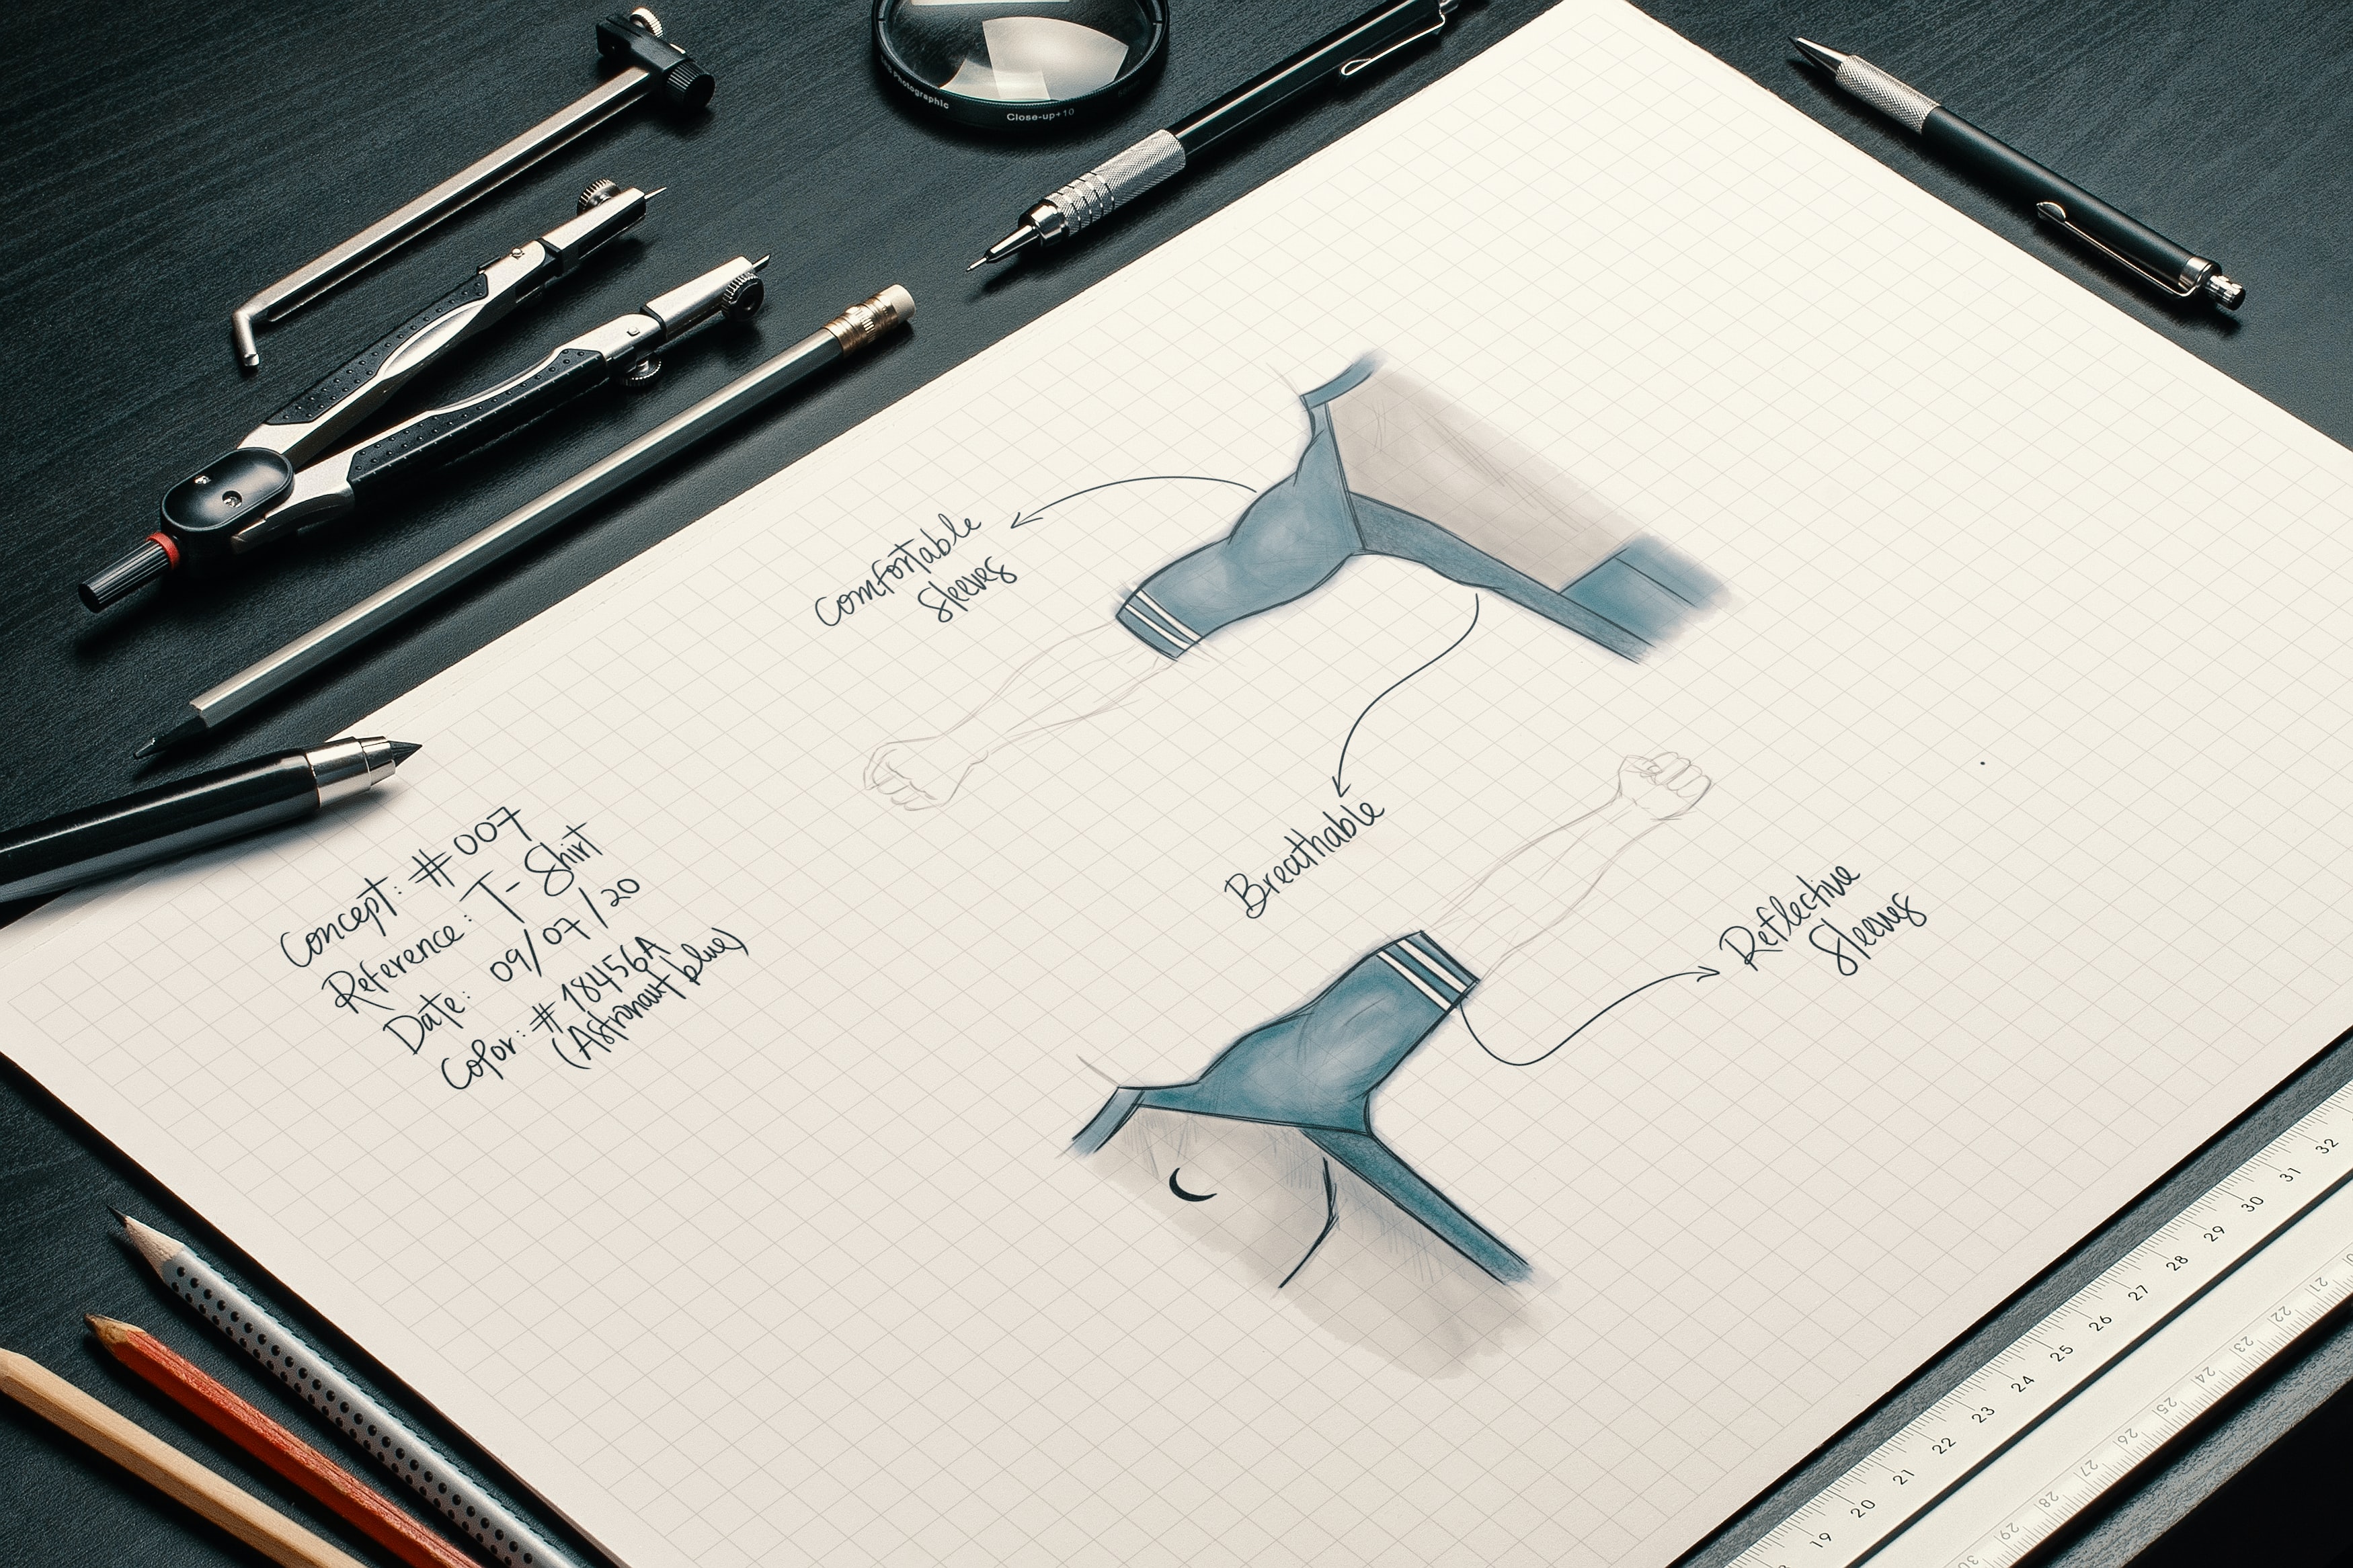 Photographic
Close-up+10
Comfortable
Sleeves
Breathable
Reflective
Sleeves
Concept: #007
Reference: T-Shirt
Date: 09/07/20
Color: #18456A
(Astronaut blue)
19 20 21 22 23 24 25 26 27 28 29 30 31 32
21 22 23 24 25 26 27 28 29 30